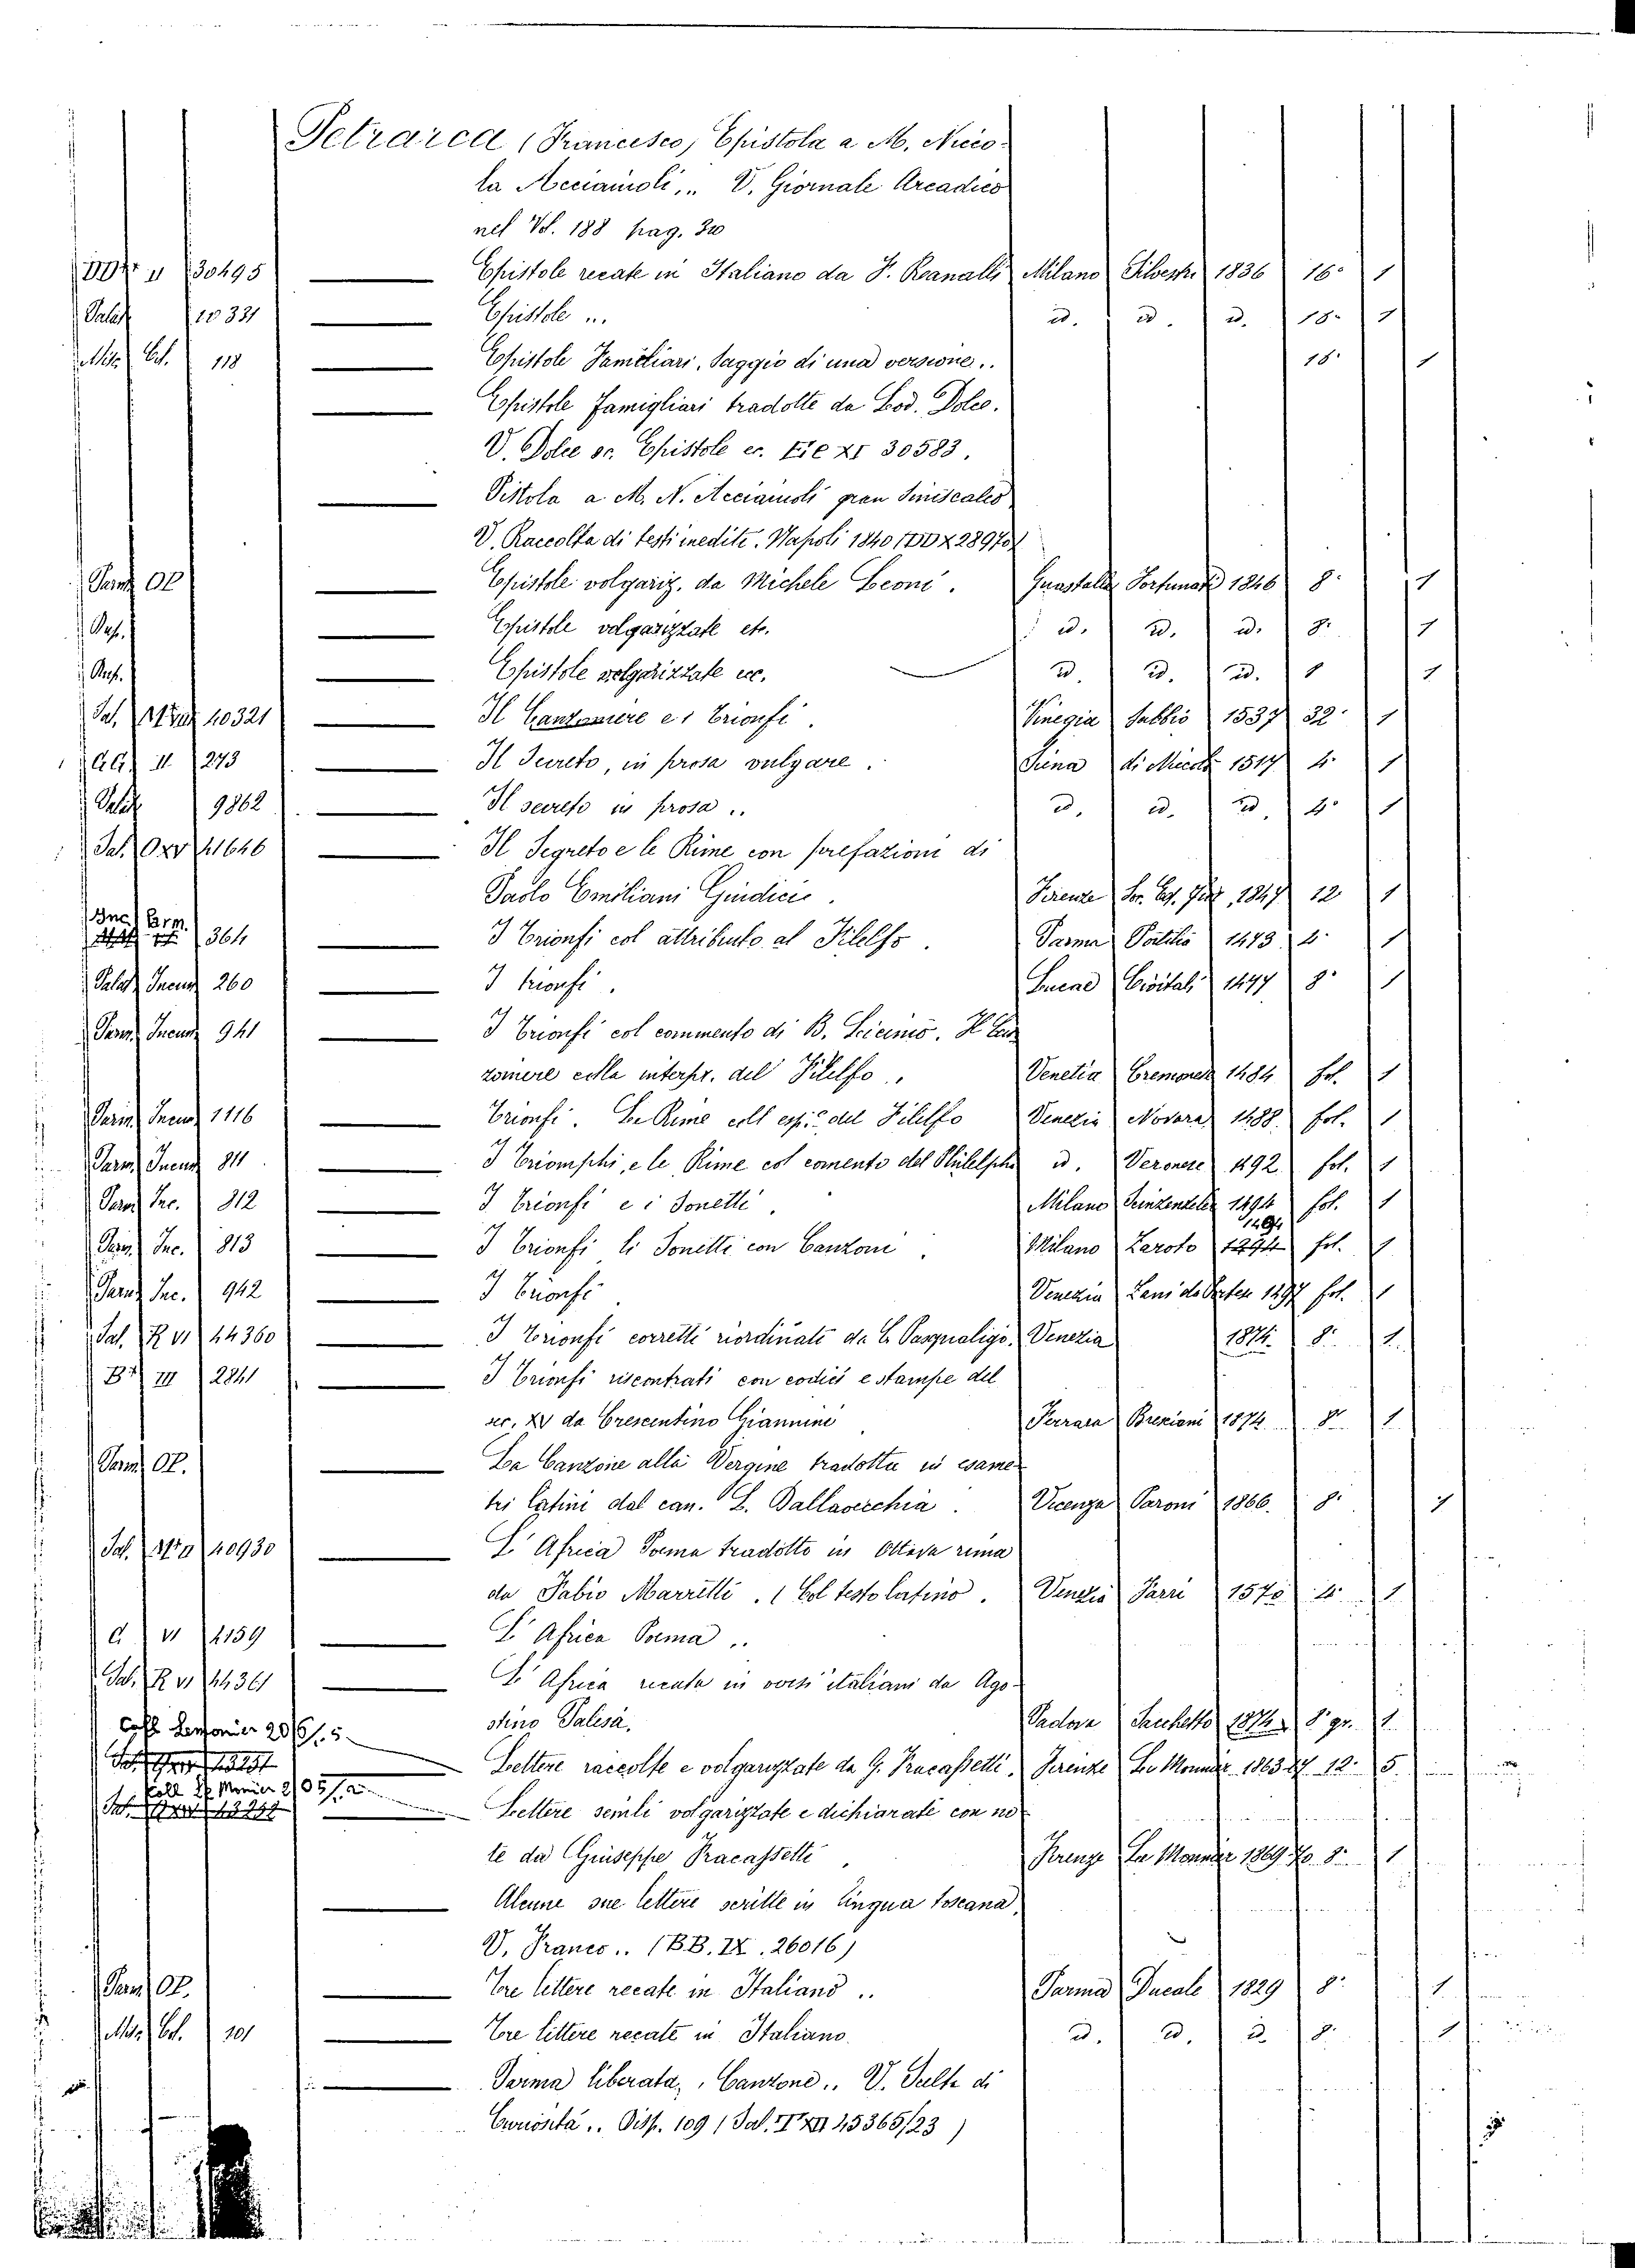 Petrarca (Francesco) Epistola a M. Nico-
la Acciaiuoli,.. V. Giornale Arcadico
nel Vol. 188 pag. 310
30495 Epistole recate in Italiano da F. Ranalli Milano Silvestri 1836 16º 1
Palat 10331 Epistole ... id. id. id. 18º 1
Misc. Est. 118 Epistole Familiari, Saggio di una versione.. 18º 1
Epistole famigliari tradotte da Lod. Dolce.
V. Dolce sc. Epistole ec. 30583.
Pistola a M. N. Acciaiuoli gran Siniscalco
V. Raccolta di testi inedite. Napoli 1840 28970
Parm OP Epistole volgariz. da Michele Leoni. Guastalla Fortunati 1816 8º 1
Epistole volgarizzate etc. id. id. id. 8º 1
Epistole volgarizzate ec. id. id. id. 8 1
Sal. 40321 Il Canzoniere e i Trionfi. Vinegia Sabbio 1537 32º 1
II 273 Il Secreto, in prosa vulgare. Siena di Micolò 1517 4º 1
Palat 9862 Il secreto in prosa.. id. id. id. 4º 1
Sal. Oxv 41646 Il Segreto e le Rime con prefazione di
Paolo Emiliani Giudici. Firenze 1847 12 1
Inc. Parm. 364 I Trionfi col attribuito al Filelfo. Parma Portilia 1473 4º 1
Palat Incun 260 I trionfi. Lucae Civitali 1477 8º 1
Parm Incun 941 I Trionfi col commento di B. Licinio. Il Can
zoniere colla interpr. del Filelfo.. Venetia Cremonese 1484 fol. 1
Parm Incun 1116 Trionfi. Le Rime coll esp.e del Filelfo Venezia Novara 1488 fol. 1
Parm Incun 811 I Triomphi, e le Rime col comento del Philelpho id. Veronese 1492 fol. 1
Parm Inc. 812 I Trionfi e i Sonetti Milano Scinzenzeler 1494 fol. 1
1494
Parm Inc. 813 I Trionfi li Sonetti con Canzoni. Milano Zaroto 1294 fol. 1
Parm Inc. 942 I Trionfi Venezia Zani da Portese 1497 fol. 1
Sal. R VI 44360 I Trionfi corretti riordinati da C. Pasqualigo. Venezia 1874. 8º 1
III 2841 I Trionfi riscontrati con codici e stampe del
sec. XV da Crescentino Giannini Ferrara Bresciani 1874 8º 1
Parm OP. La Canzone alla Vergine tradotta in esame-
tri latini dal can. L. Dallavecchia. Vicenza Paroni 1866. 8º 1
Sal. 40930 L' Africa Poema tradotto in Ottava rima
da Fabio Marretti. (Col testo latino. Venezia Farri 1570 4º 1
VI 4159 L' Africa Poema ..
Sal. R VI 44361 L' Africa recata in versi italiani da Ago-
stino Palesa. Padova Sacchetto 1874 8º gr. 1
Coll Lemonier 206/1.5
Lettere raccolte e volgarizzate da G. Fracassetti. Firenze Le Monnier 1863-67 12º 5
Coll Le Monier 205/1.2
Lettere senili volgarizzate e dichiarate con no-
te da Giuseppe Fracassetti Firenze Le Monnier 1869-70 8º 1
Alcune sue lettere scritte in lingua toscana.
V. Franco.. (BB. IX. 26016)
Parm OP. Tre lettere recate in Italiano .. Parma Ducale 1829 8º 1
Misc. Est. 101 Tre lettere recate in Italiano. id. id. id. 8º 1
Parma liberata, Canzone.. V. Scelta di
Curiosità.. Disp. 109 (Sal. 45365/23)